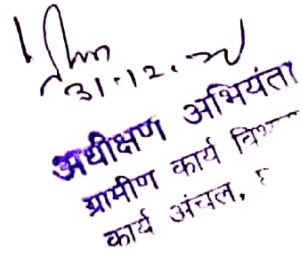 31.12.20
अधीक्षण अभियंता
ग्रामीण कार्य
कार्य अंचल,